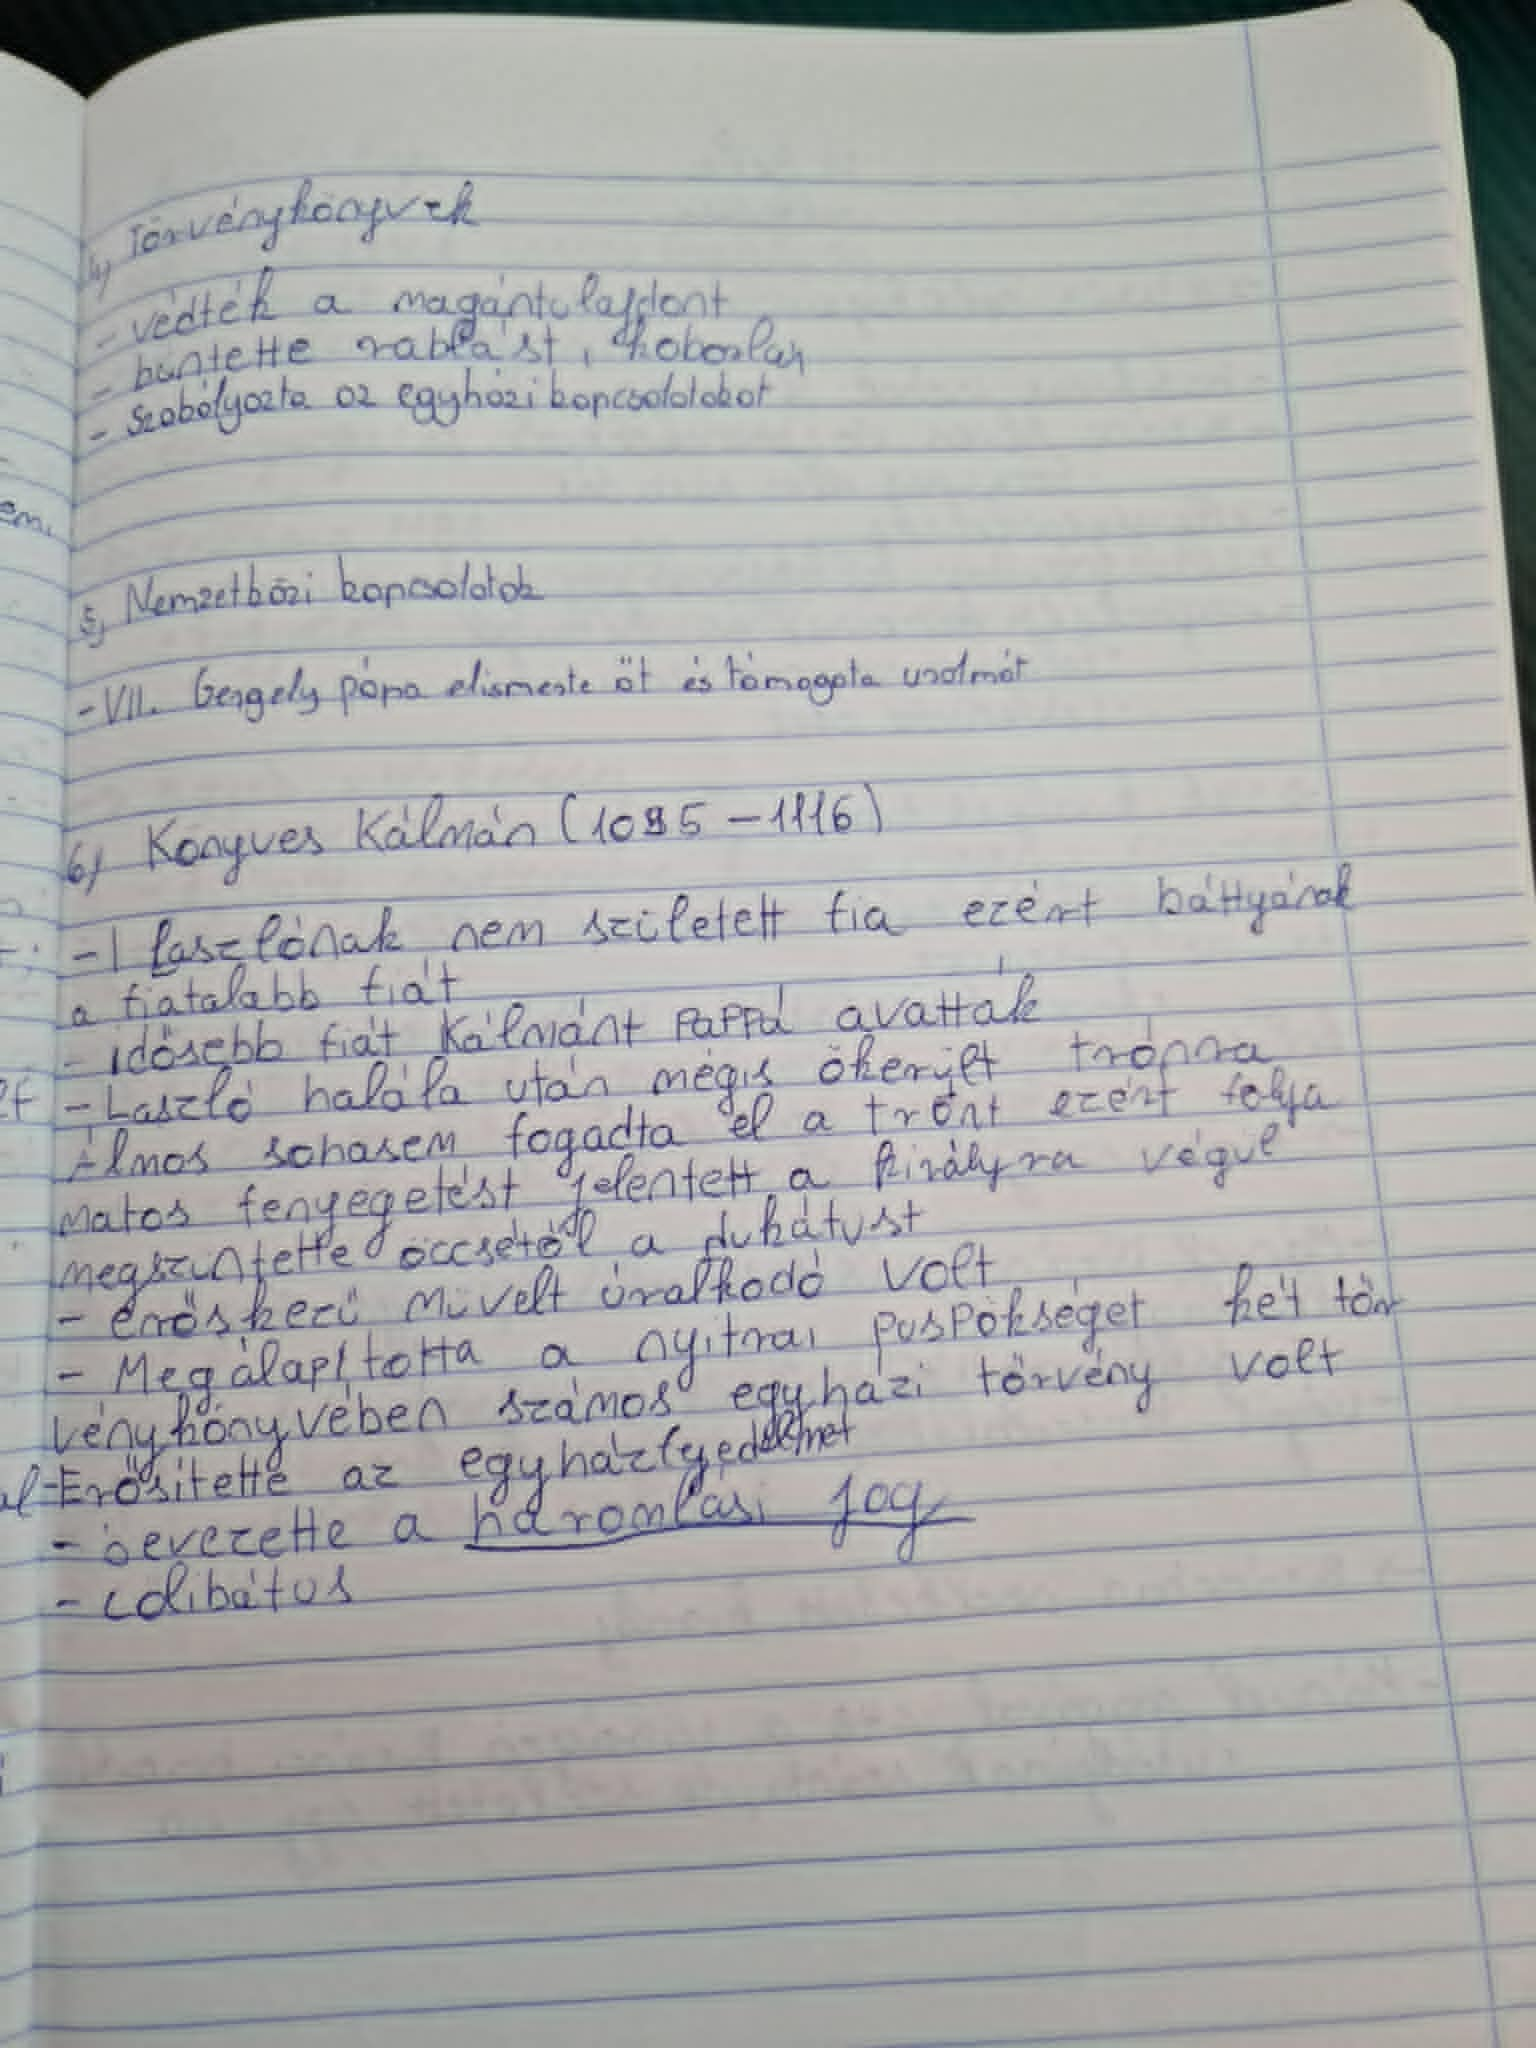 4) Törvénykönyvek
- védték a magántulajdont
- büntette rablást, koborlás
- Szabályozta az egyházi kapcsolatokat
5, Nemzetközi kapcsolatok
- VII. Gergely pápa elismerte őt és támogata uralmát
6) Könyves Kálmán (1095 - 1116)
- I Laszlónak nem született fia ezért báttyának
a fiatalabb fiát
- idősebb fiát Kálmánt pappá avatták
- László halála után mégis őkerült trónra
Álmos sohasem fogadta el a trónt ezért folya
matos fenyegetést jelentett a királyra végül
megszüntette öccsétől a dukátust
- erőskezű művelt úralkodó volt
- Megálapította a nyitrai püspökséget két tör
vénykönyvében számos egyházi törvény volt
- Erősítette az egyházfegyedelmet
- bevezette a háromlási jog
- cölibátus
em,